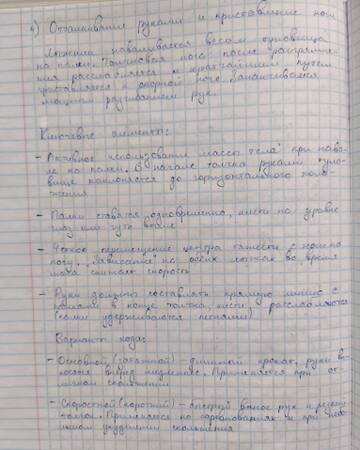 4) Отталкивание руками и приставление ног
Лыжник наваливается весом туловища
на палки. Толчковая нога после
расслабляется и кратчайшим путем
приставляется к опорной ноге. Заканчивается
мощным разгибанием рук.
Ключевые элементы:
- Активное использование массы тела при нава-
ле на палки. В начале толчка руками туло-
вище наклоняется до горизонтального поло-
жения
- Палки ставятся одновременно, кисти на уровне
глаз или чуть выше
- Четкое перемещение центра тяжести с ноги на
ногу. "Зависание" на обеих лыжах во время
маха снижает скорость
- Руки должны составлять прямую линию с
палками в конце толчка, кисти расслабляются
(палки удерживаются петлями)
Варианты хода:
- Основной (затяжной) - длинный прокат, руки вы-
носятся вперед медленнее. Применяется при от-
личном скольжении
- Скоростной (короткий) - быстрый вынос рук и
толчок. Применяется на соревнованиях и при
ухудшении скольжения